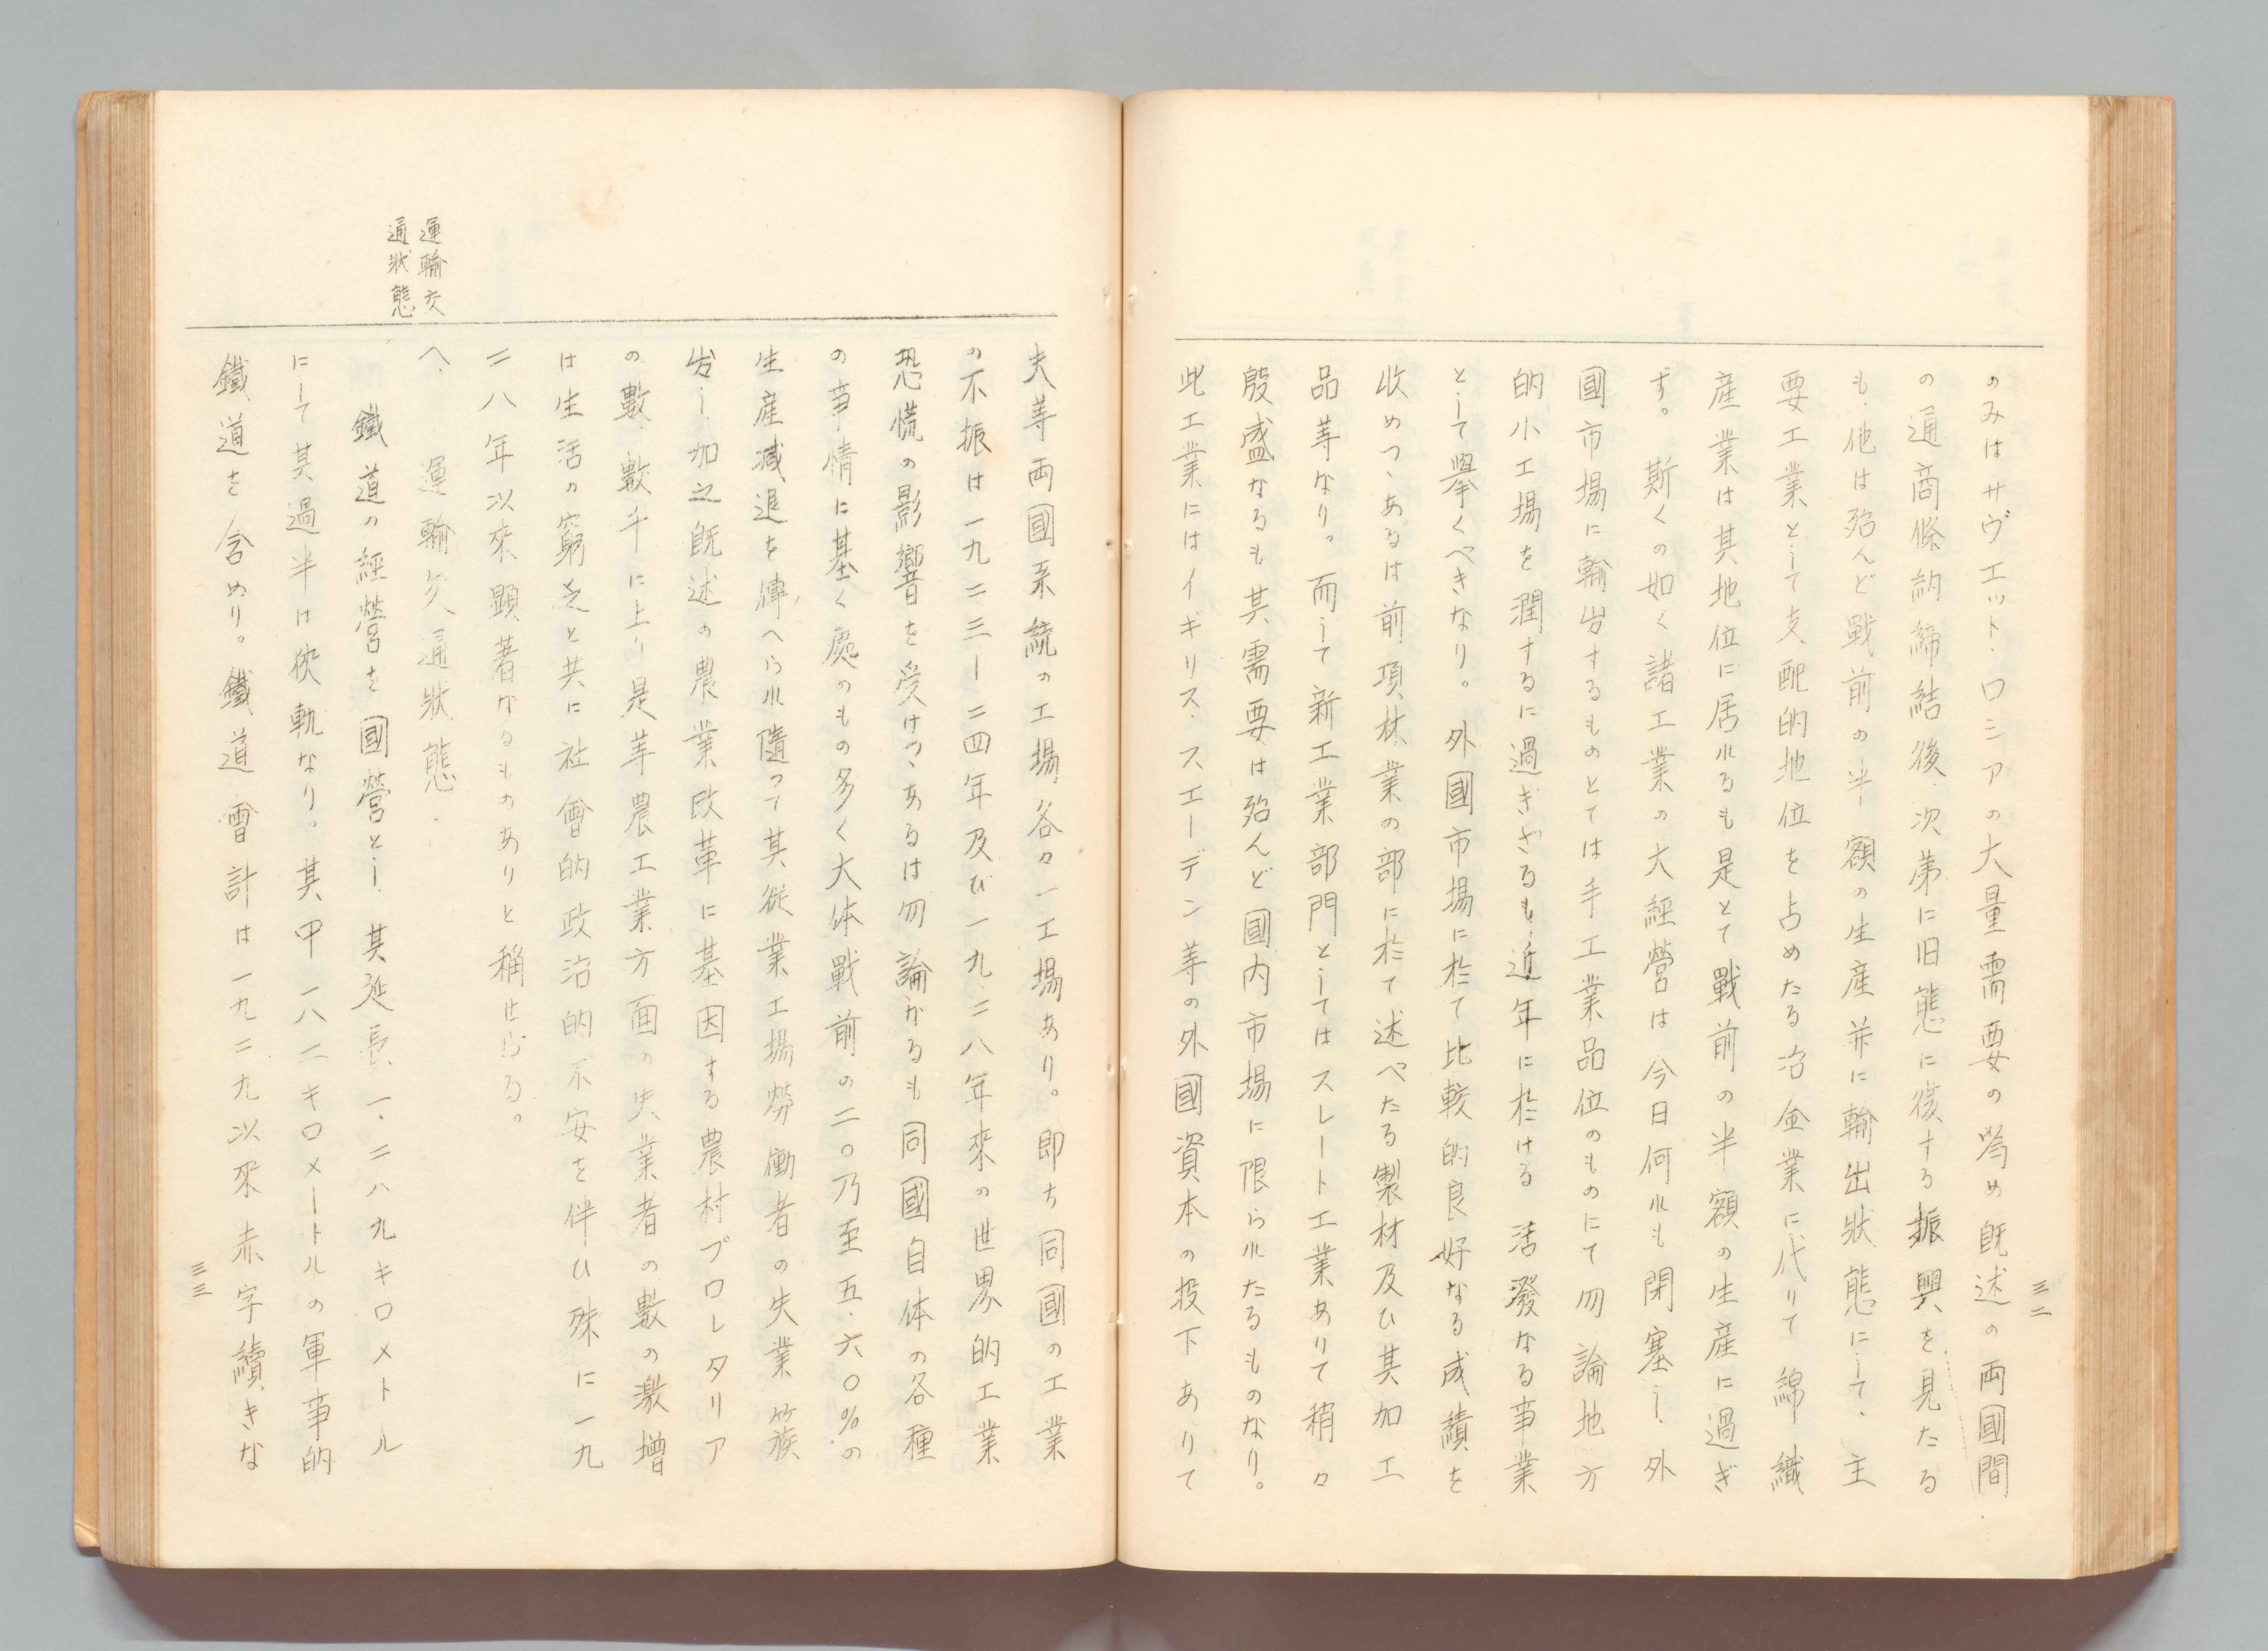 のみはサヴエット・ロシアの大量需要の為め既述の両國間
の通商條約締結後、次第に旧態に復する振興を見たる
も、他は殆んど戰前の半額の生産並に輸出狀態にして、主
要工業として支配的地位を占めたる冶金業に代りて綿織
産業は其地位に居れるも是とて戰前の半額の生産に過ぎ
ず。斯くの如く諸工業の大經營は今日何れも閉塞し、外
國市場に輸出するものとては手工業品位のものにて勿論地方
的小工場を潤するに過ぎざるも、近年に於ける活潑なる事業
として擧くべきなり。外國市場に於て比較的良好なる成績を
收めつゝあるは前項、林業の部に於て述べたる製材及ひ其加工
品等なり。而して新工業部門としてはスレート工業ありて稍々
殷盛なるも其需要は殆んど國內市場に限られたるものなり。
此工業にはイギリス、スエーデン等の外國資本の投下ありて
三二
夫等両國系統の工場、各々一工場あり。即ち同國の工業
の不振は一九二三ー二四年及び一九二八年來の世界的工業
恐慌の影響を受けつゝあるは勿論なるも同國自体の各種
の事情に基く處のもの多く大体戰前の二〇乃至五、六〇%の
生産減退を傳へられ隨って其從業工場勞働者の失業簇
出し、加之既述の農業改革に基因する農村プロレタリア
の數、數千に上り是等農工業方面の失業者の數の激增
は生活の窮乏と共に社會的政治的不安を伴ひ殊に一九
二八年以來、顯著なるものありと稱せらる。
運輸交
通狀態
ヘ、運輸交通狀態、
鐵道の經營を國營とし、其延長、一、二八九キロメトル
にして其過半は狹軌なり。其中一八一キロメートルの軍事的
鐵道を含めり。鐵道會計は一九二九以來赤字續きな
三三